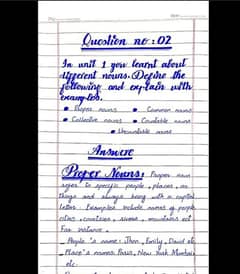 Question no : 02
In unit 1 you learnt about
different nouns. Define the
following and explain with
examples.
• Proper nouns • Common nouns
• Collective nouns • Countable nouns
• Uncountable nouns
Answer
Proper Nouns: Proper noun
refer to specific people, places, or
things and always being with a capital
letter. Examples include names of people
cities, countries, rivers, mountains ect
For instance.
People's name: Jhon, Emily, David etc
Place's names: Paris, New York, Mumbai
etc.